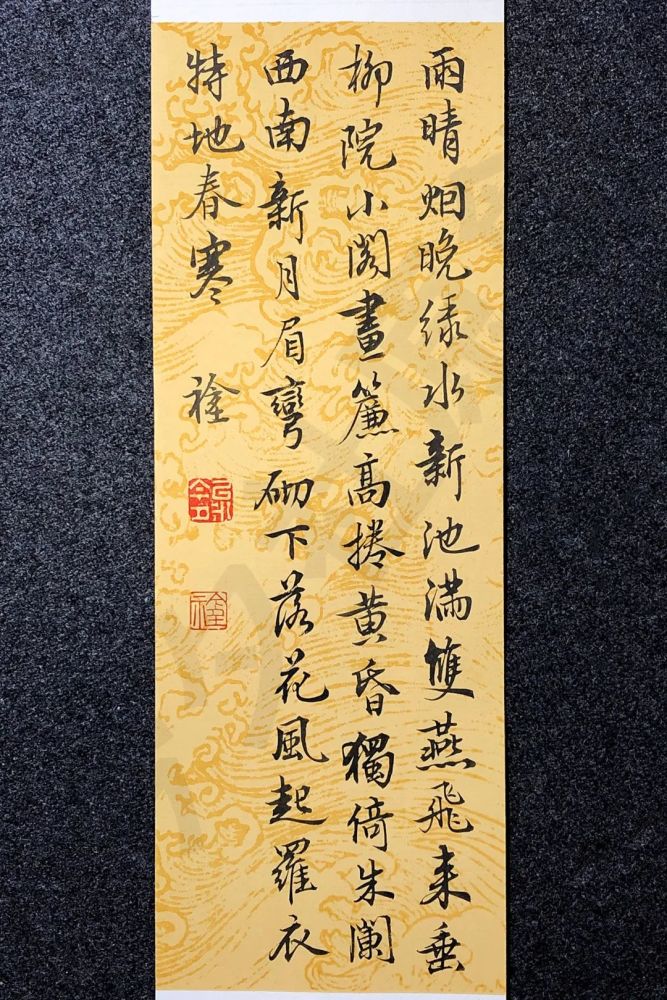 雨晴烟晚緑水新池滿雙燕飛来垂
柳院小閣畫簾高捲黄昏獨倚朱闌
西南新月眉彎砌下落花風起羅衣
特地春寒